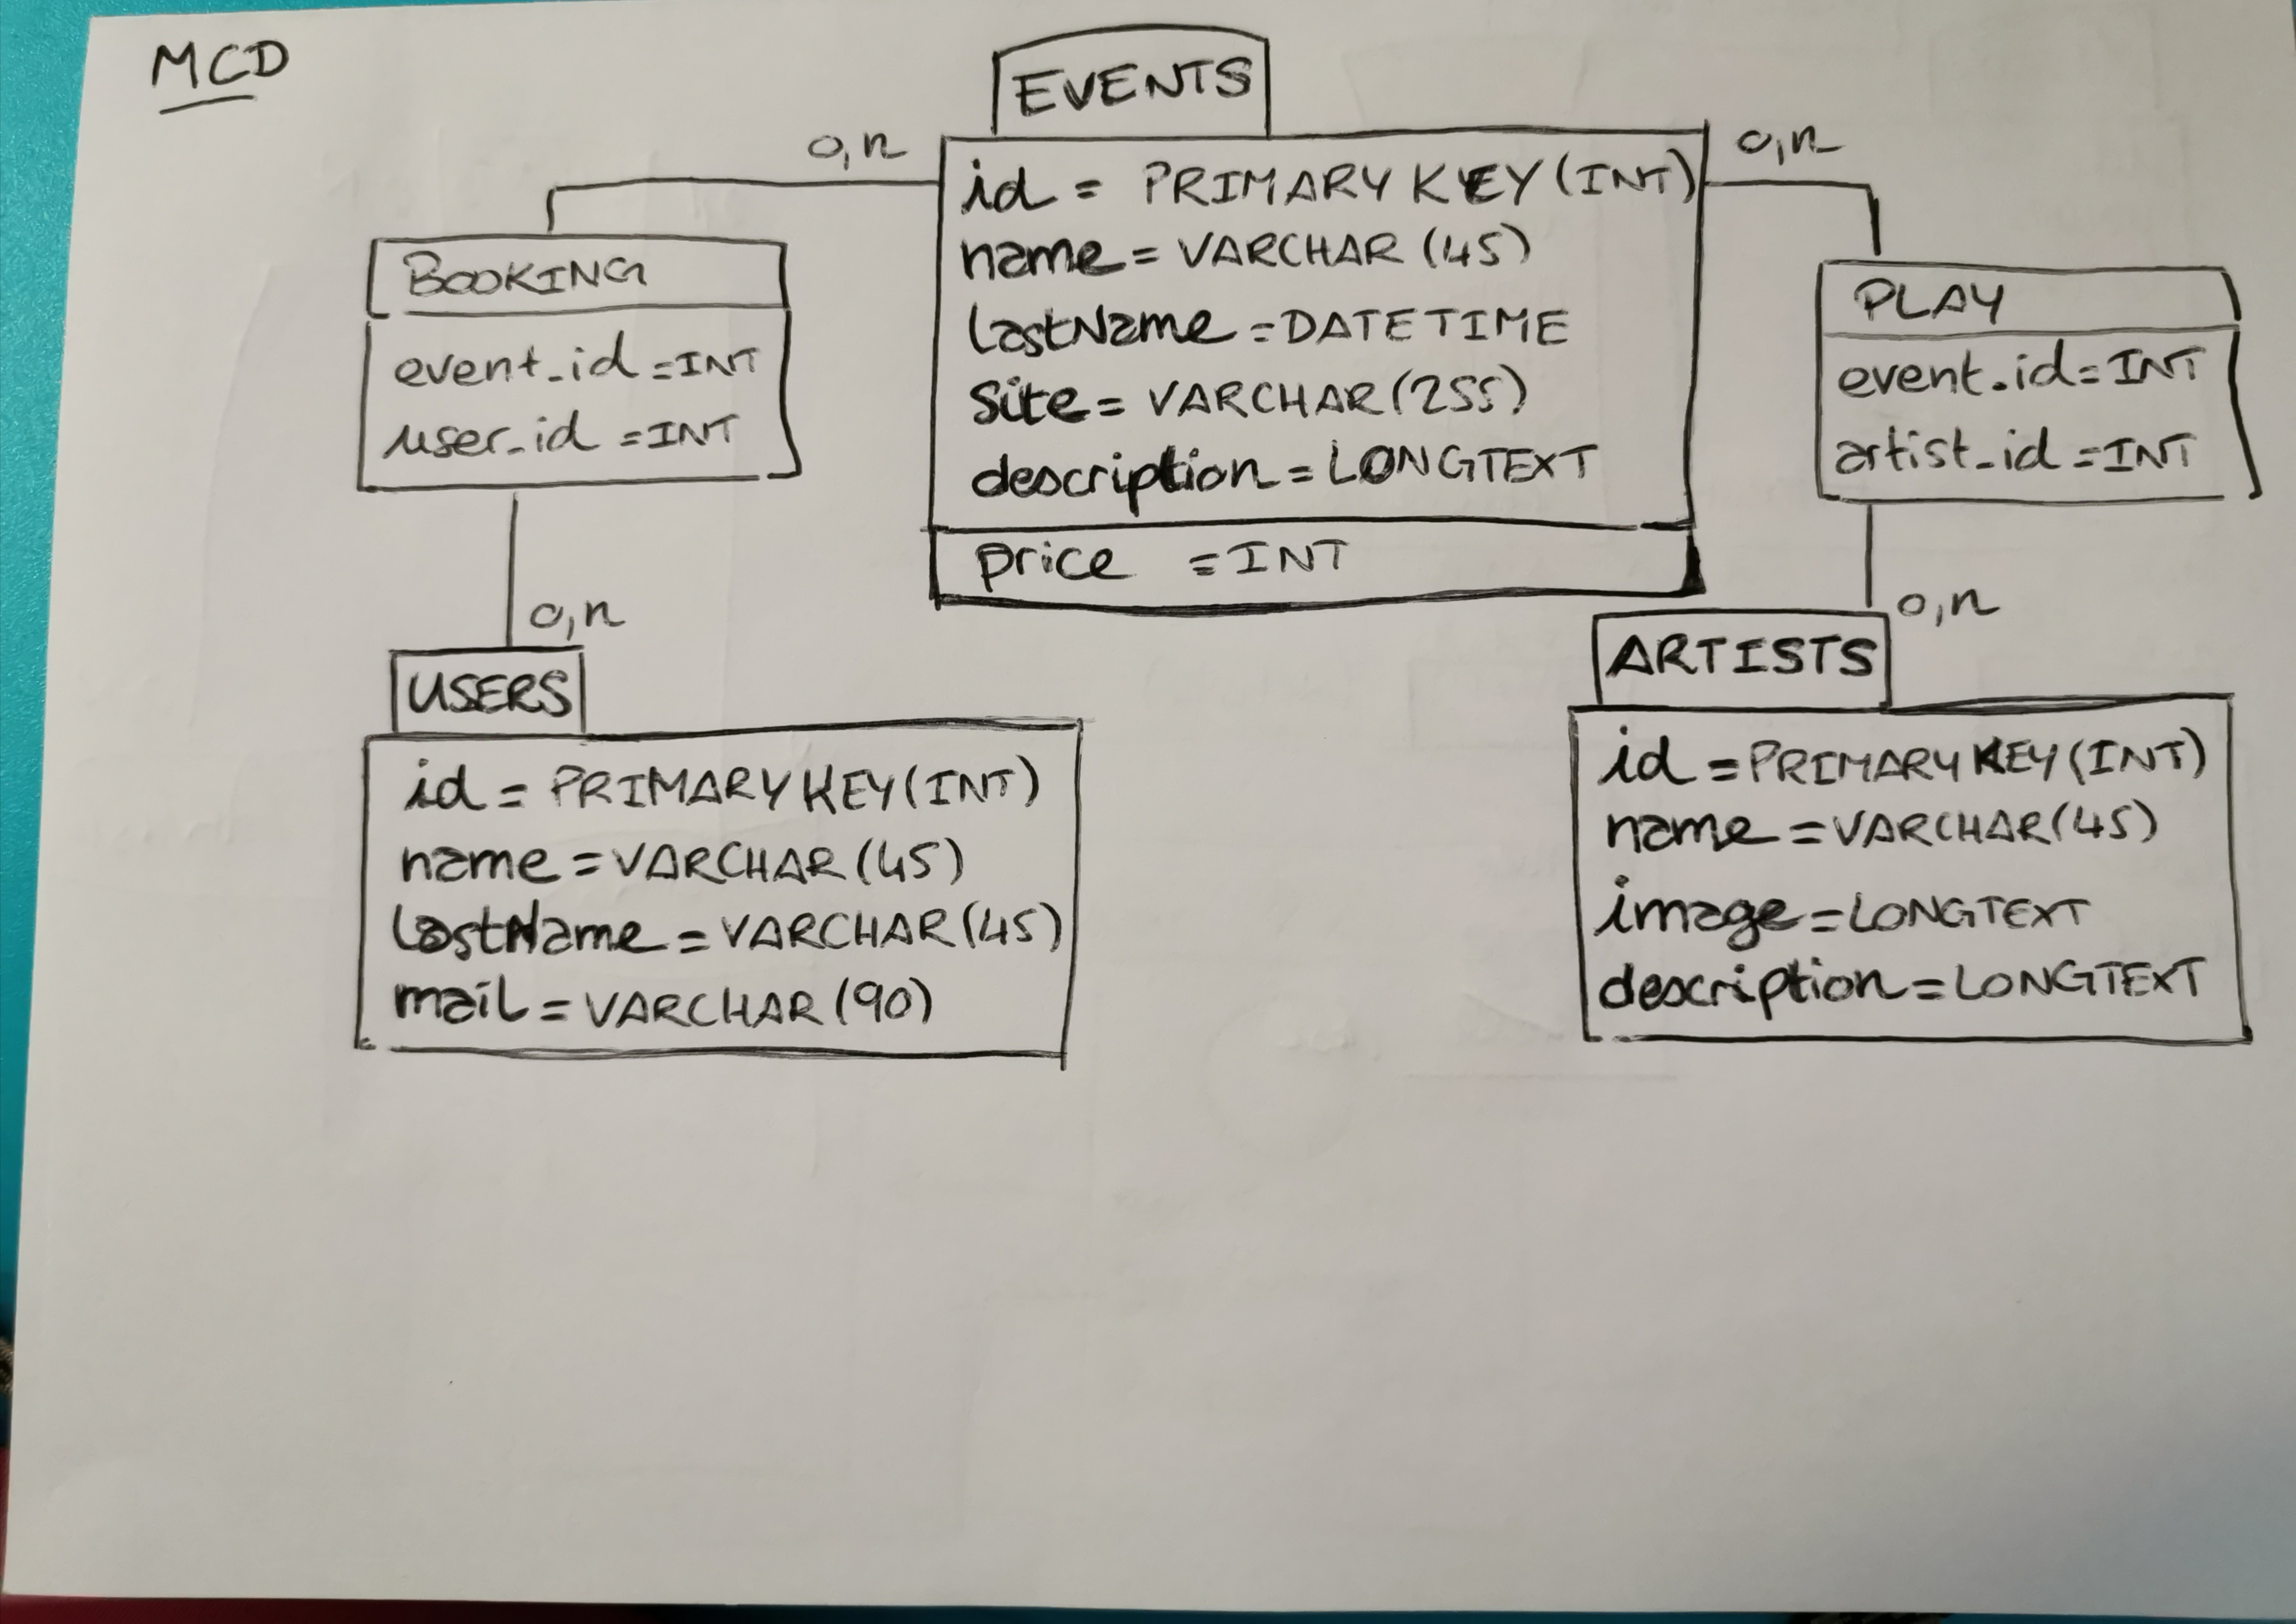 MCD
EVENTS
0,n
0,n
id = PRIMARY KEY (INT)
name = VARCHAR (45)
lastName = DATETIME
Site = VARCHAR (255)
description = LONGTEXT
price = INT
BOOKING
event_id = INT
user_id = INT
PLAY
event_id = INT
artist_id = INT
0,n
0,n
USERS
id = PRIMARY KEY (INT)
name = VARCHAR (45)
lastName = VARCHAR (45)
mail = VARCHAR (90)
ARTISTS
id = PRIMARY KEY (INT)
name = VARCHAR (45)
image = LONGTEXT
description = LONGTEXT